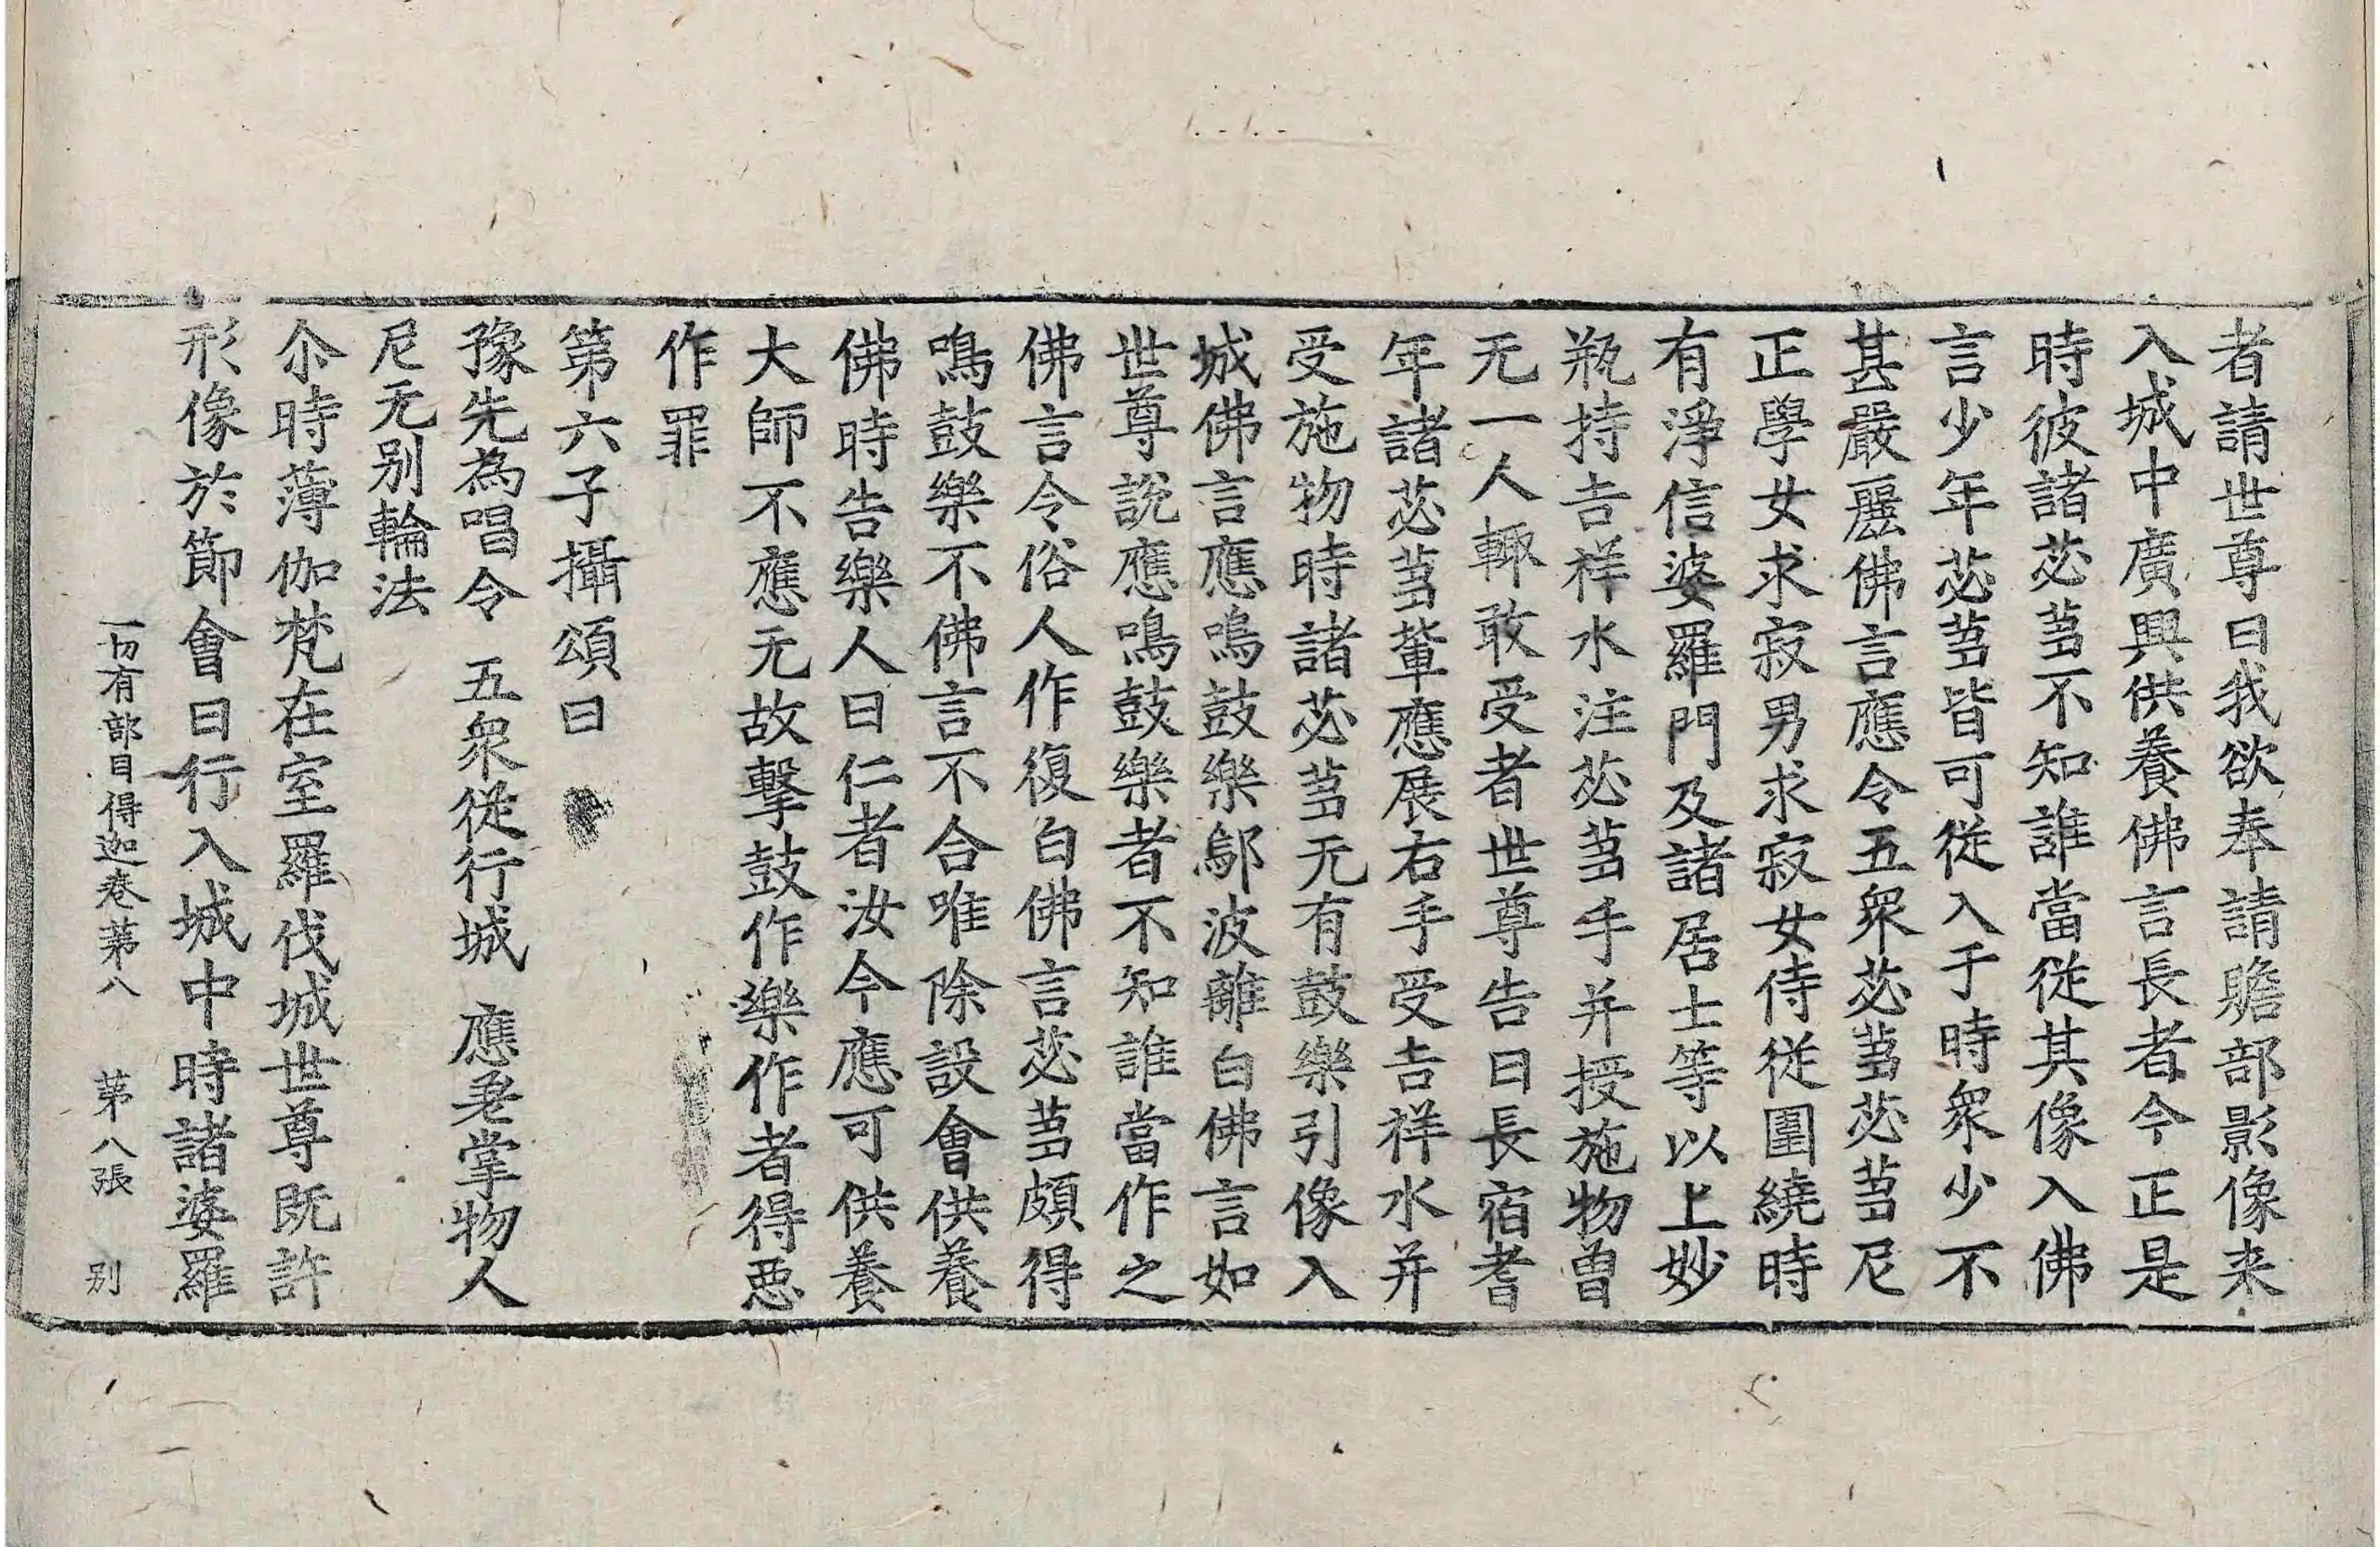 者請世尊曰我欲奉請贍部影像来
入城中廣興供養佛言長者今正是
時彼諸苾芻不知誰當從其像入佛
言少年苾芻皆可從入于時衆少不
甚嚴麗佛言應令五衆苾芻苾芻尼
正學女求寂男求寂女侍從圍繞時
有淨信婆羅門及諸居士等以上妙
瓶持吉祥水注苾芻手并授施物曾
无一人輒敢受者世尊告曰長宿耆
年諸苾芻輩應展右手受吉祥水并
受施物時諸苾芻无有鼓樂引像入
城佛言應鳴鼓樂鄔波離白佛言如
世尊說應鳴鼓樂者不知誰當作之
佛言令俗人作復白佛言苾芻頗得
鳴鼓樂不佛言不合唯除設會供養
佛時告樂人曰仁者汝今應可供養
大師不應无故擊鼓作樂作者得惡
作罪
第六子攝頌曰
豫先為唱令 五衆從行城 應差掌物人
尼无别輪法
尒時薄伽梵在室羅伐城世尊既許
形像於節會日行入城中時諸婆羅
一切有部目得迦卷苐八 苐八張 别